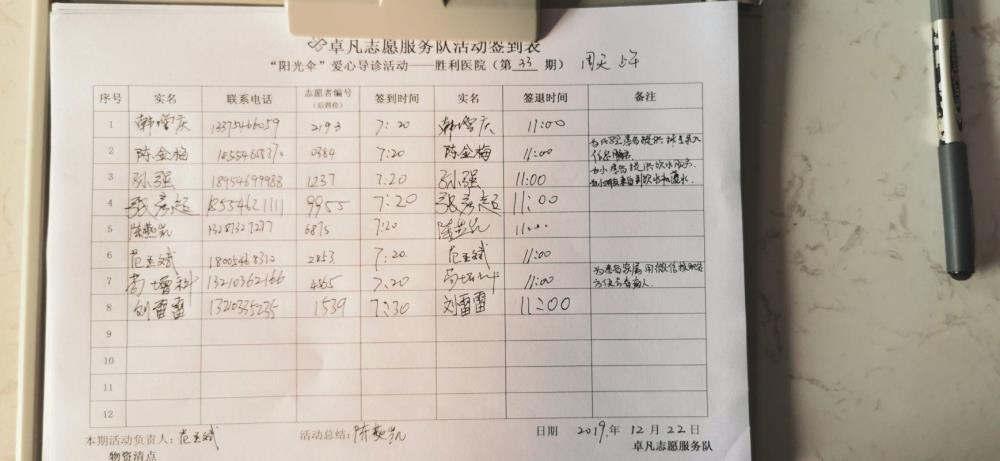 卓凡志愿服务队活动签到表
“阳光伞”爱心导诊活动——胜利医院（第 33 期） 周天 上午
序号 实名 联系电话 志愿者编号（后四位） 签到时间 实名 签退时间 备注
1 韩增庆 13375466059 2193 7:20 韩增庆 11:00
2 陈金梅 0384 7:20 陈金梅 11:00
3 孙强 18954699988 1237 7:20 孙强 11:00
4 张彦超 18554621111 9955 7:20 张彦超 11:00
5 13287327277 6875 7:20 11:00
6 范玉斌 18005468310 2853 7:20 范玉斌 11:00
7 苟增科 13210362166 4865 7:20 11:00
8 刘雷雷 13210335235 1539 7:30 刘雷雷 11:00
9
10
11
12
本期活动负责人：范玉斌 活动总结： 日期 2019年 12月 22日
物资清点 卓凡志愿服务队